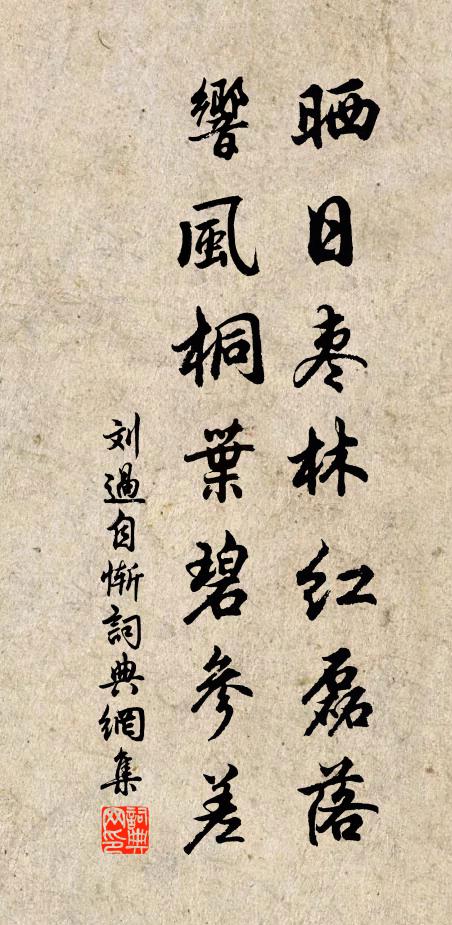 晒日枣林红磊落
響風桐葉碧參差
刘過自慚詞典網集
詞典網印